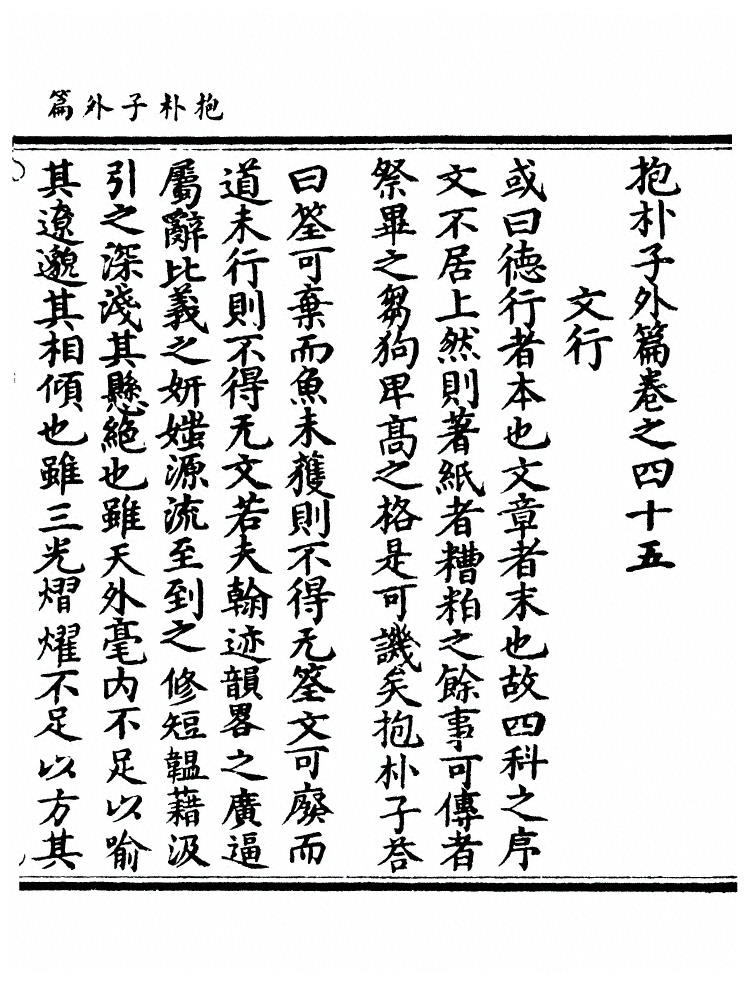 抱朴子外篇
抱朴子外篇卷之四十五
文行
或曰德行者本也文章者末也故四科之序
文不居上然則著紙者糟粕之餘事可傳者
祭畢之芻狗卑高之格是可譏矣抱朴子荅
曰筌可棄而魚未獲則不得无筌文可廢而
道未行則不得无文若夫翰迹韻畧之廣逼
屬辭比義之妍媸源流至到之修短韞藉汲
引之深淺其懸絕也雖天外毫內不足以喻
其遼邈其相傾也雖三光熠燿不足以方其